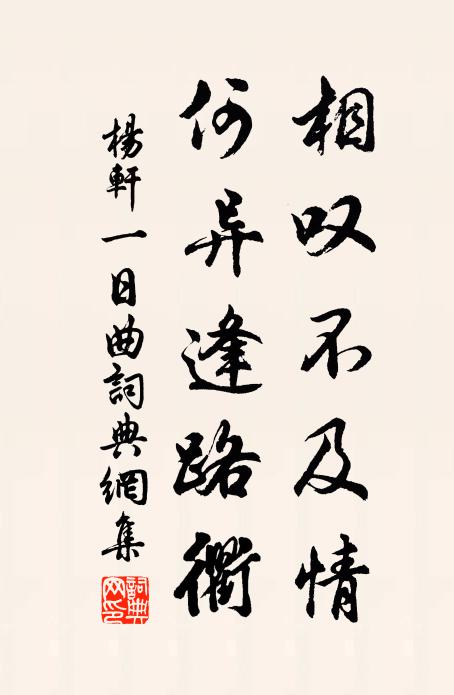 相叹不及情
何异逢路衢
楊軒一日曲詞典網集
詞典网印